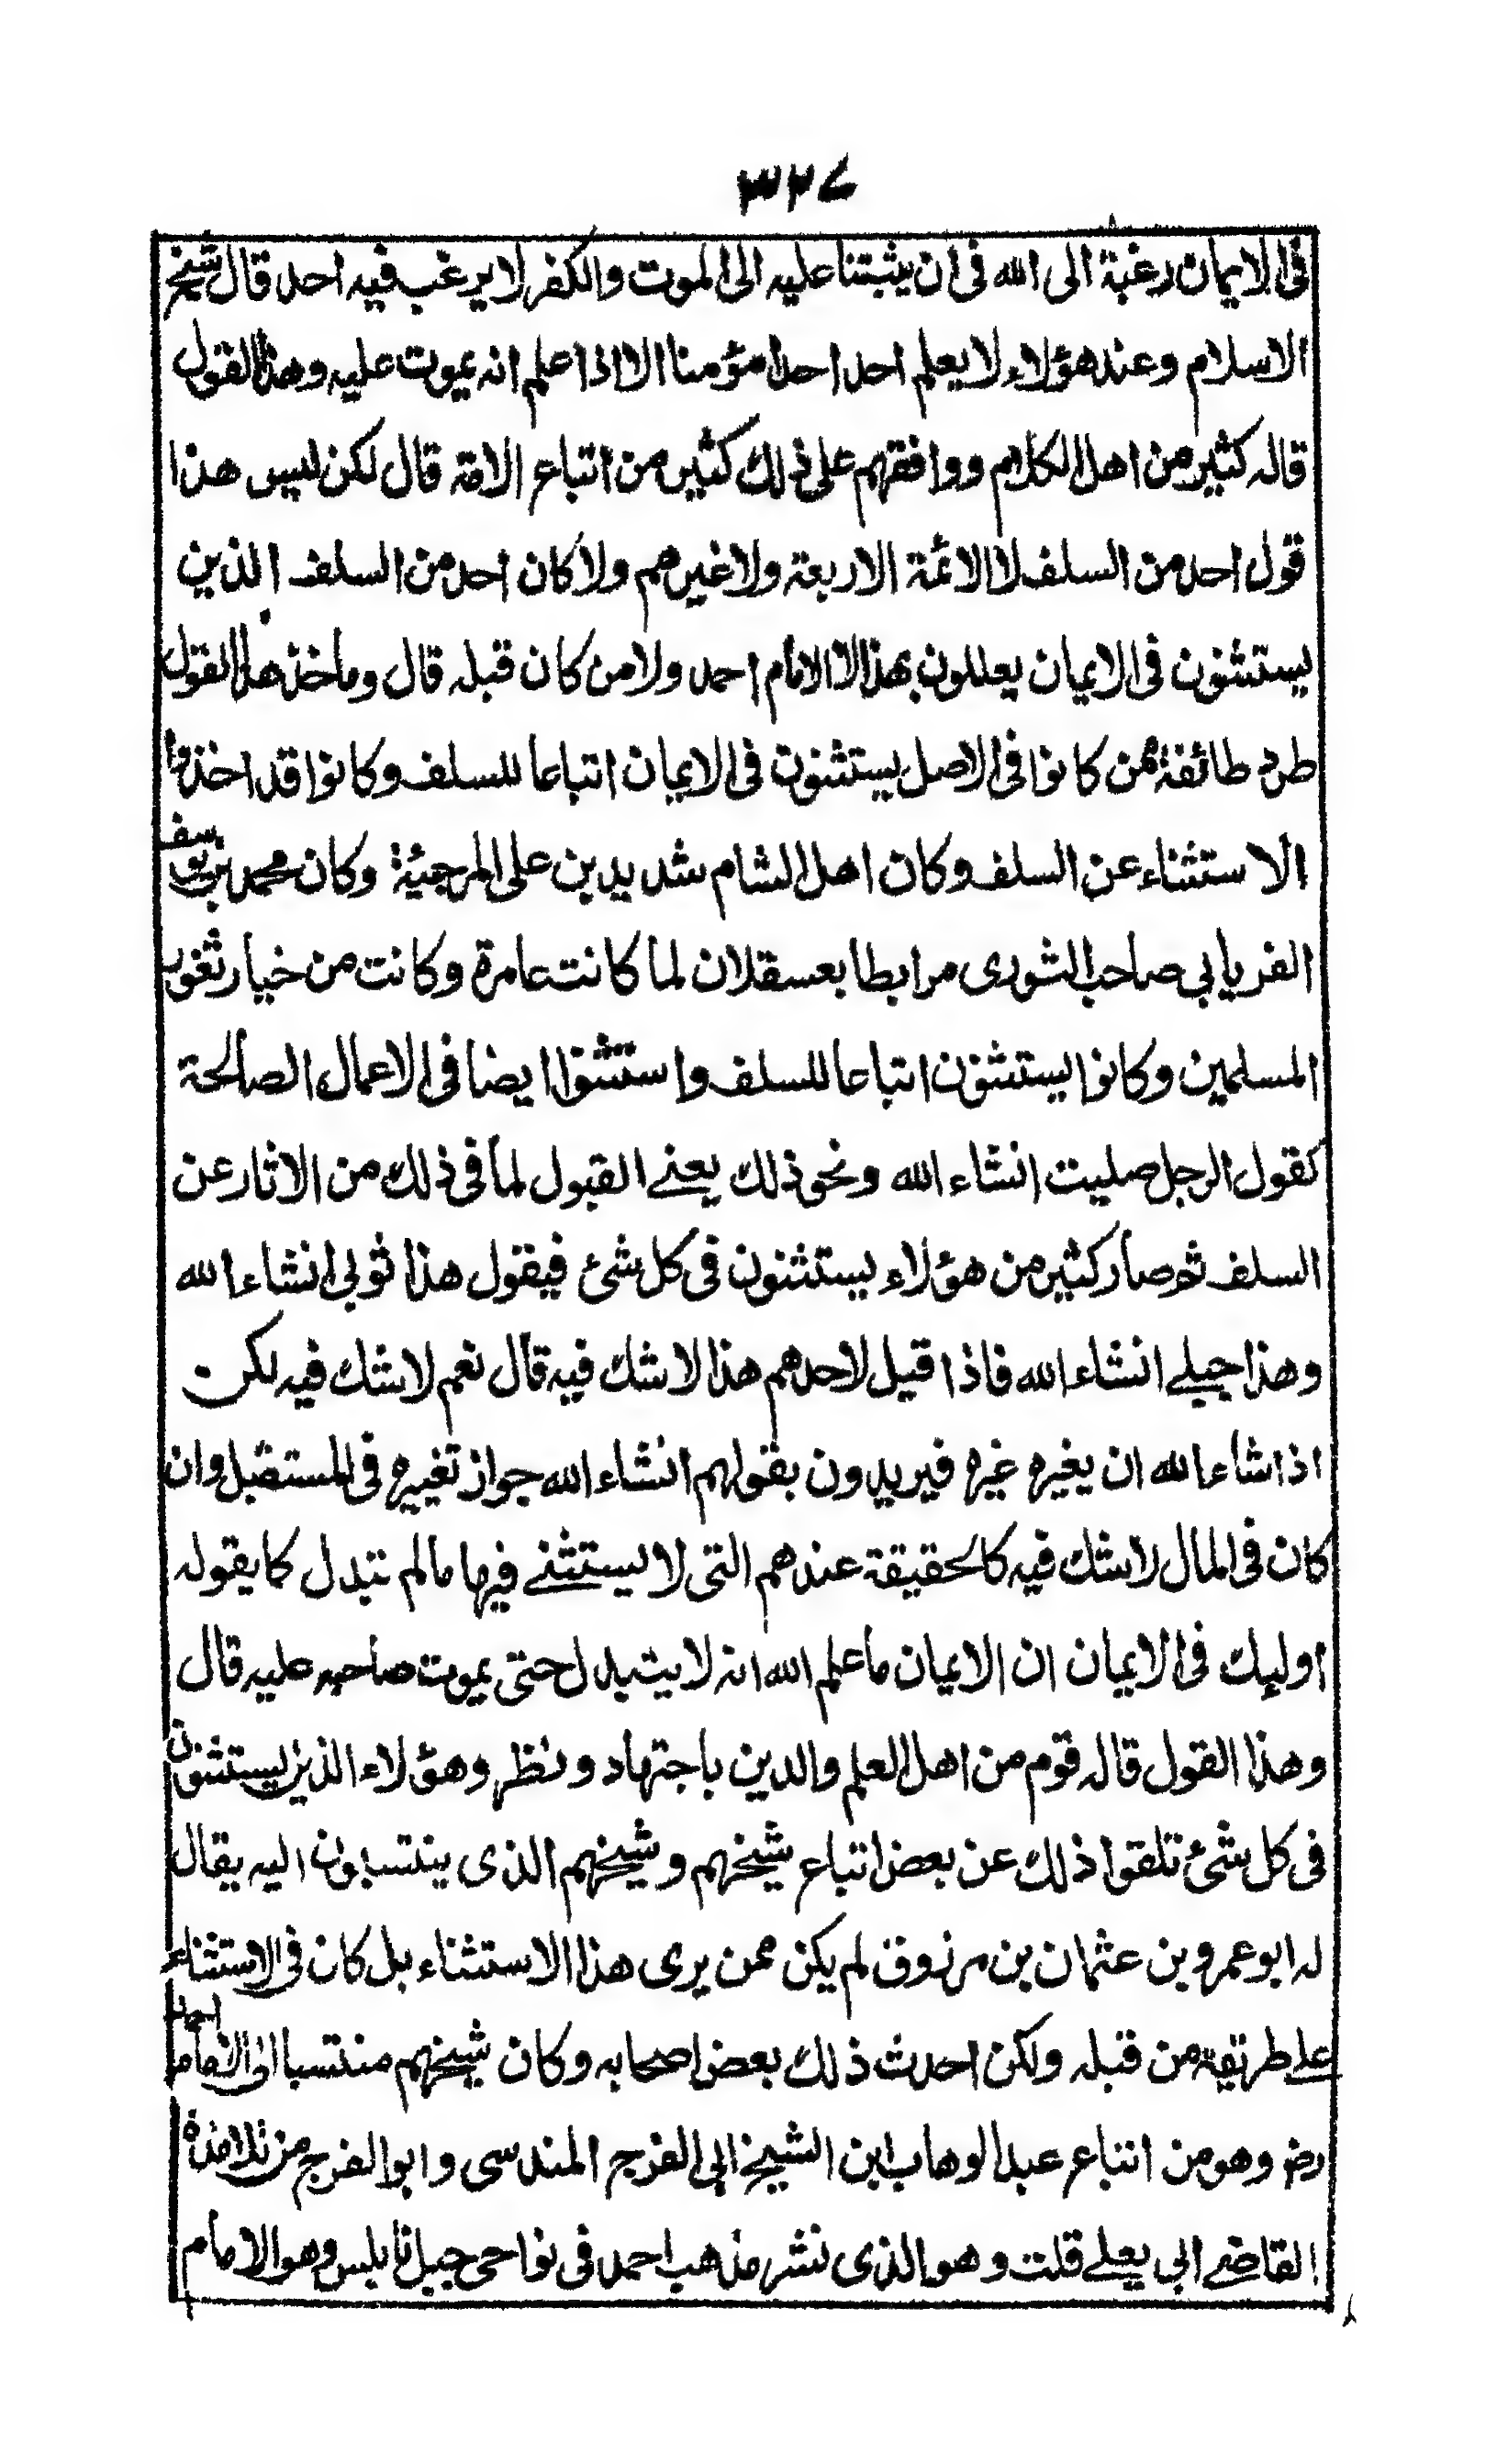 ٣٢٧
فى الايمان رغبة الى الله فى ان يثبتنا عليه الى الموت والكفر لا يرغب فيه احد قال شيخ
الاسلام وعند هؤلاء لا يعلم احد احدا مؤمنا الا اذا علم انه يموت عليه وهذا القول
قاله كثير من اهل الكلام ووافقهم على ذلك كثير من اتباع الائمة قال لكن ليس هذا
قول احد من السلف لا الائمة الاربعة ولا غيرهم ولا كان احد من السلف الذين
يستثنون فى الايمان يعللون بهذا لا الامام احمد ولا من كان قبله قال وماخذ هذا القول
طرد طائفة ممن كانوا فى الاصل يستثنون فى الايمان اتباعا للسلف وكانوا قد اخذوا
الاستثناء عن السلف وكان اهل الشام شديدين على المرجئة وكان محمد بن يوسف
الفريابى صاحب الثورى مرابطا بعسقلان لما كانت عامرة وكانت من خيار ثغور
المسلمين وكانوا يستثنون اتباعا للسلف واستثنوا ايضا فى الاعمال الصالحة
كقول الرجل صليت انشاء الله ونحو ذلك يعنے القبول لما فى ذلك من الاثار عن
السلف ثم صار كثير من هؤلاء يستثنون فى كل شئ فيقول هذا ثوبى انشاء الله
وهذا حبلے انشاء الله فاذا قيل لاحدهم هذا لا شك فيه قال نعم لا شك فيه لكن
اذا شاء الله ان يغيره غيره فيريدون بقولهم انشاء الله جواز تغييره فى المستقبل وان
كان فى المال لا شك فيه كالحقيقة عندهم التى لا يستثنے فيها مالم تتبدل كما يقوله
اوليك فى الايمان ان الايمان ما علم الله انه لا يتبدل حتى يموت صاحبه عليه قال
وهذا القول قاله قوم من اهل العلم والدين باجتهاد ونظر وهؤلاء الذين يستثنون
فى كل شئ تلقوا ذلك عن بعض اتباع شيخهم وشيخهم الذى ينتسبون اليه يقال
له ابو عمرو بن عثمان بن مرزوق لم يكن ممن يرى هذا الاستثناء بل كان فى الاستثناء
علے طريقة من قبله ولكن احدث ذلك بعض اصحابه وكان شيخهم منتسبا الى الامام احمد
رضہ وهو من اتباع عبد الوهاب ابن الشيخ ابى الفرج المقدسى وابو الفرج من تلامذة
القاضے ابى يعلے قلت وهو الذى نشر مذهب احمد فى نواحى جبل نابلس وهو الامام